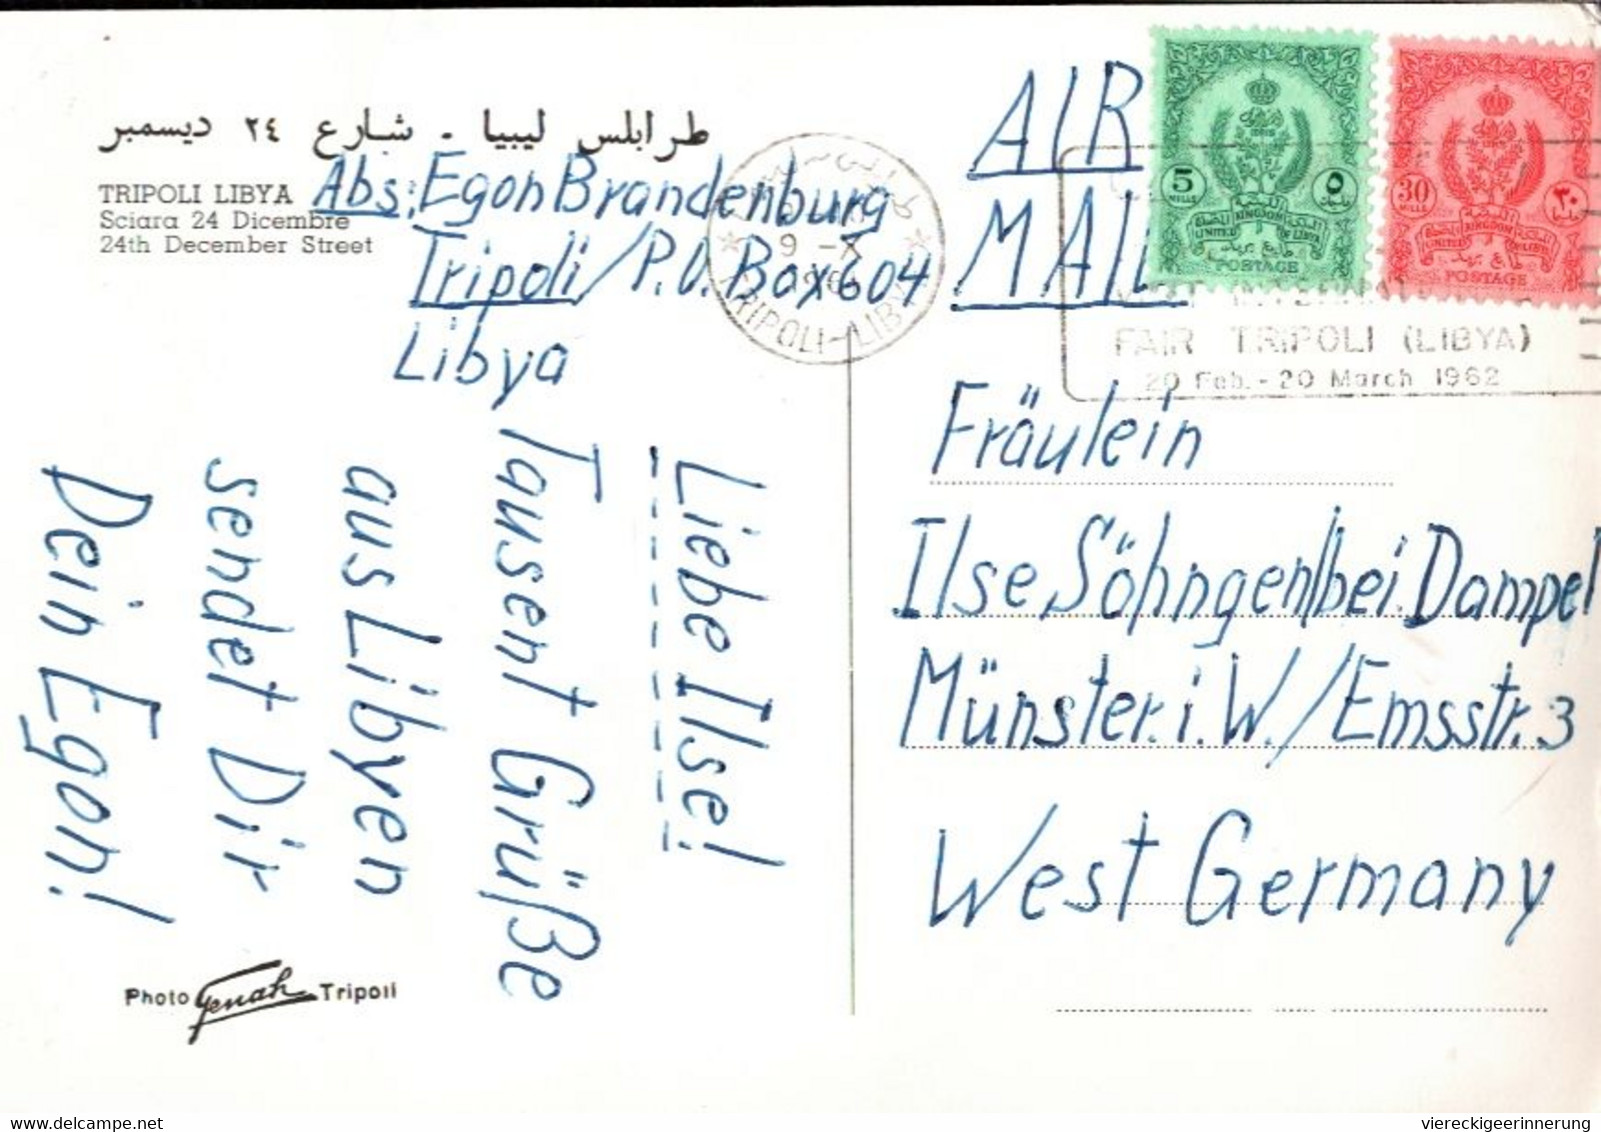 طرابلس ليبيا - شارع ٢٤ ديسمبر
TRIPOLI LIBYA
Sciara 24 Dicembre
24th December Street
Abs: Egon Brandenburg
Tripoli / P.O. Box 604
Libya
Liebe Ilse!
Tausent Grüße
aus Libyen
sendet Dir
Dein Egon!
Photo Tripoli
9 - X
TRIPOLI - LIBYA
AIR
MAIL
5
MILLS
٥
UNITED KINGDOM OF LIBYA
POSTAGE
30
MILLS
٣٠
UNITED KINGDOM OF LIBYA
POSTAGE
FAIR TRIPOLI (LIBYA)
20 Feb. - 20 March 1962
Fräulein
Ilse Söhngen / bei Dampel
Münster i. W. / Emsstr. 3
West Germany
delcampe.net
viereckigeerinnerung